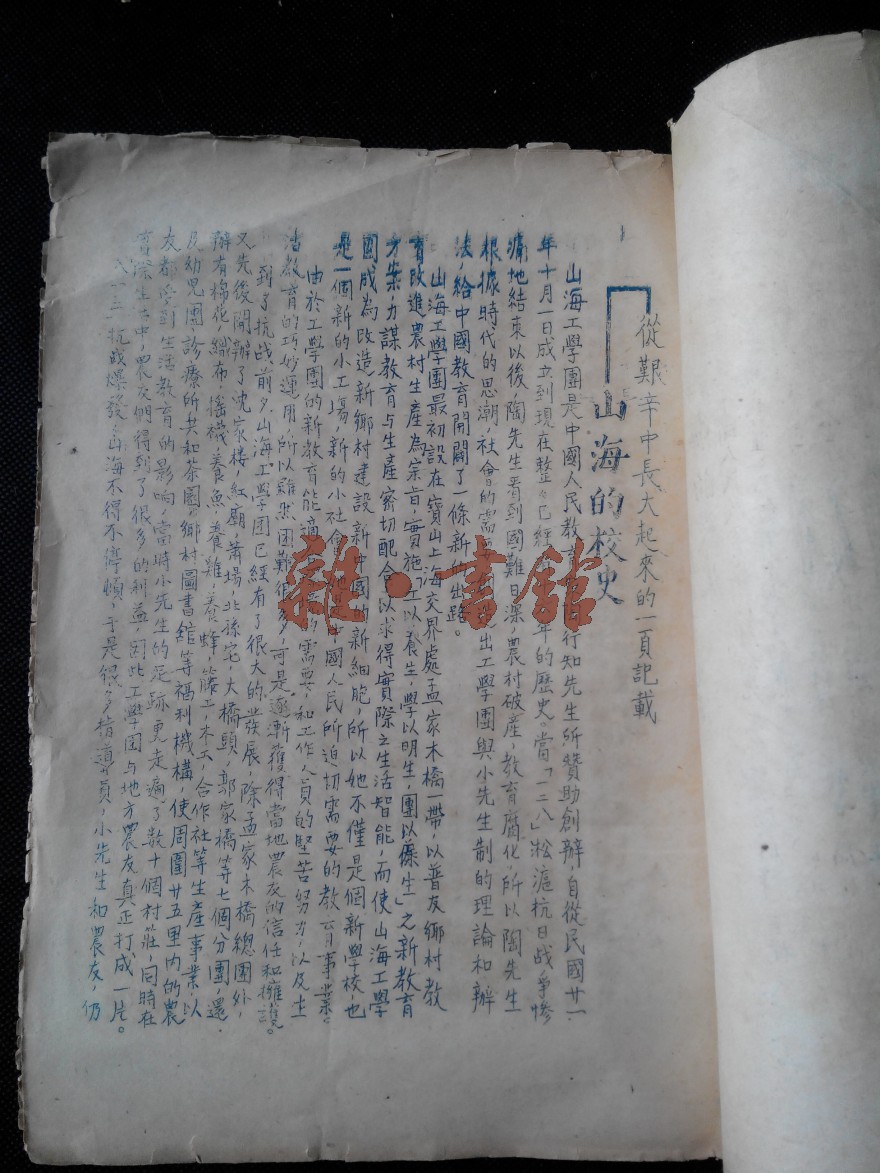 從艱辛中長大起來的一頁記載
山海的校史
山海工學團是中國人民教育行知先生所贊助創辦，自從民國廿一
年十月一日成立到現在整々已經年的歷史。當「一二八」淞滬抗日战爭慘
痛地結束以後，陶先生看到國難日深，農村破產，教育腐化，所以陶先生
根據時代的思潮，社會的需要出工學團與小先生制的理論和辦
法，給中國教育開闢了一條新的出路。
山海工學團最初設在寶山上海交界處孟家木橋一帶以普及鄉村教
育改進農村生產為宗旨，實施「工以養生，學以明生，團以保生」之新教育
方案，力謀教育与生產密切配合，以求得實際之生活智能，而使山海工學
團成為改造新鄉村建設新中國的新細胞，所以她不僅是個新學校，也
是一個新的小工場，新的小社會，國人民所迫切需要的教育事業。
由於工學團的新教育能適需要，和工作人員的堅苦努力，以及生
活教育的巧妙運用，所以雖然困難很多，可是逐漸獲得當地農友的信任和擁護。
到了抗战前夕，山海工學团已經有了很大的發展，除孟家木橋總團外，
又先後開辦了沈家楼，紅廟，蕭場，北孫宅，大橋頭，郭家橋等七個分團，還
辦有棉花，織布，搖襪，養魚，養雞，養蜂，籐工，木工，合作社等生產事業，以
及幼兒團診療所共和茶園，鄉村圖書館等福利機構，使周圍廿五里内的農
友都受到生活教育的影响，當時小先生的足跡更走遍了数十個村莊，同時在
實際生活中，農友們得到了很多的利益，因此工學团与地方農友真正打成一片。
八一三抗战爆發，山海不得不停頓，于是很多指導員，小先生和農友，仍
雜·書館